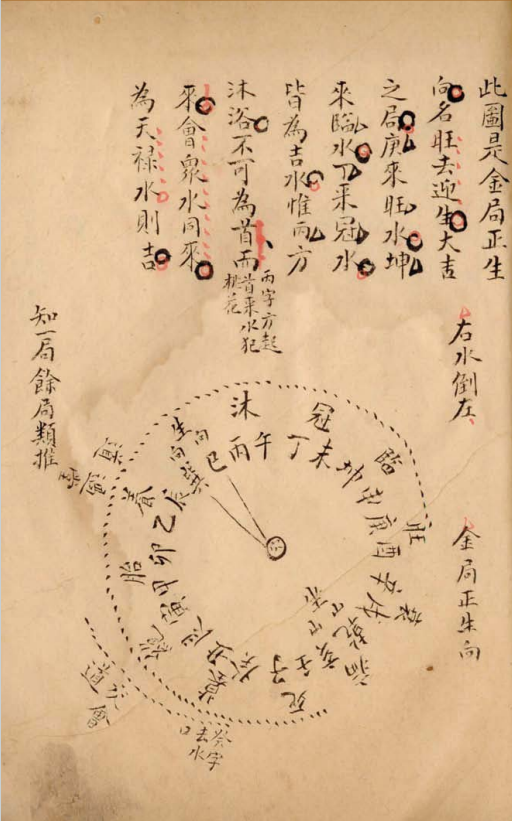 此圖是金局正生
向名旺去迎生大吉
之局庚來旺水坤
來臨水丁來冠水
皆為吉水惟丙方
沐浴不可為首而
丙字方起
首來水犯
桃花
來會衆水同來
為天禄水則吉
右水倒左
金局正生向
知一局餘局類推
沐
冠
臨
旺
衰
病
死
墓
絕
胎
養
生向
巽
巳
丙
午
丁
未
坤
申
庚
酉
辛
戌
乾
亥
壬
子
癸
丑
艮
寅
甲
卯
乙
辰
癸字
去水
口